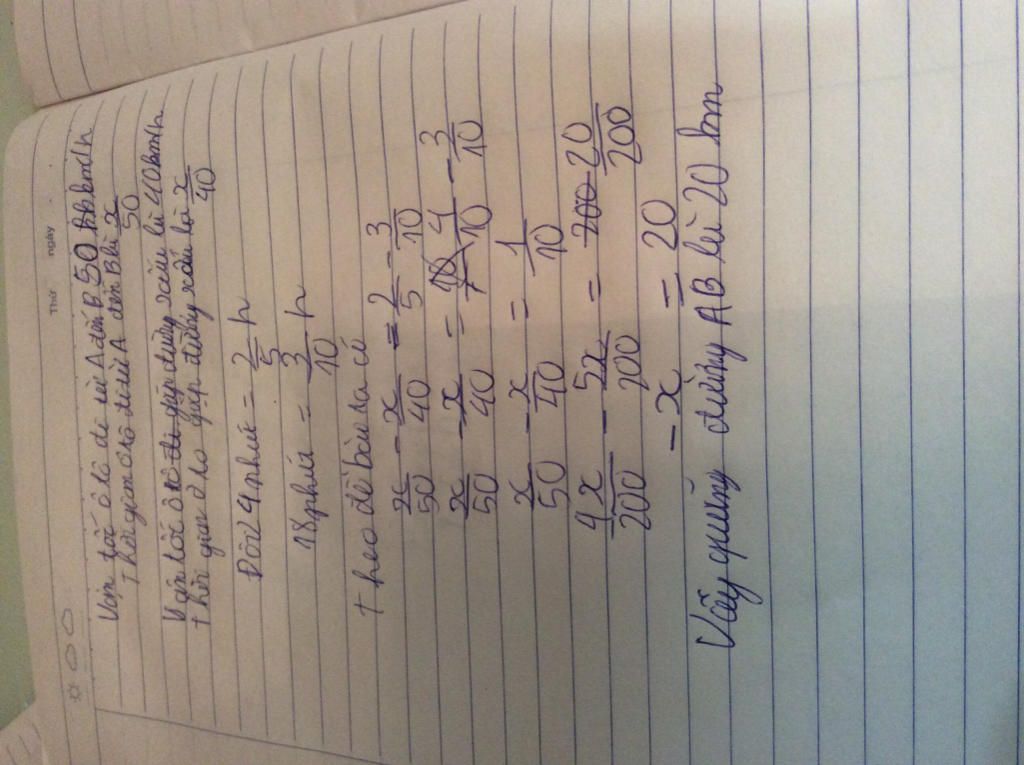 Thứ ngày
Vận tốc ô tô đi từ A đến B 50 km/h
Thời gian ô tô đi từ A đến B là x/50
Vận tốc ô tô đi gặp đường xấu là 40km/h
Thời gian ô tô gặp đường xấu là x/40
Đổi 24 phút = 2/5 h
18 phút = 3/10 h
theo đề bài ta có
x/50 - x/40 = 2/5 - 3/10
x/50 - x/40 = 4/10 - 3/10
x/50 - x/40 = 1/10
4x/200 - 5x/200 = 20/200
- x = 20
Vậy quãng đường AB là 20 km